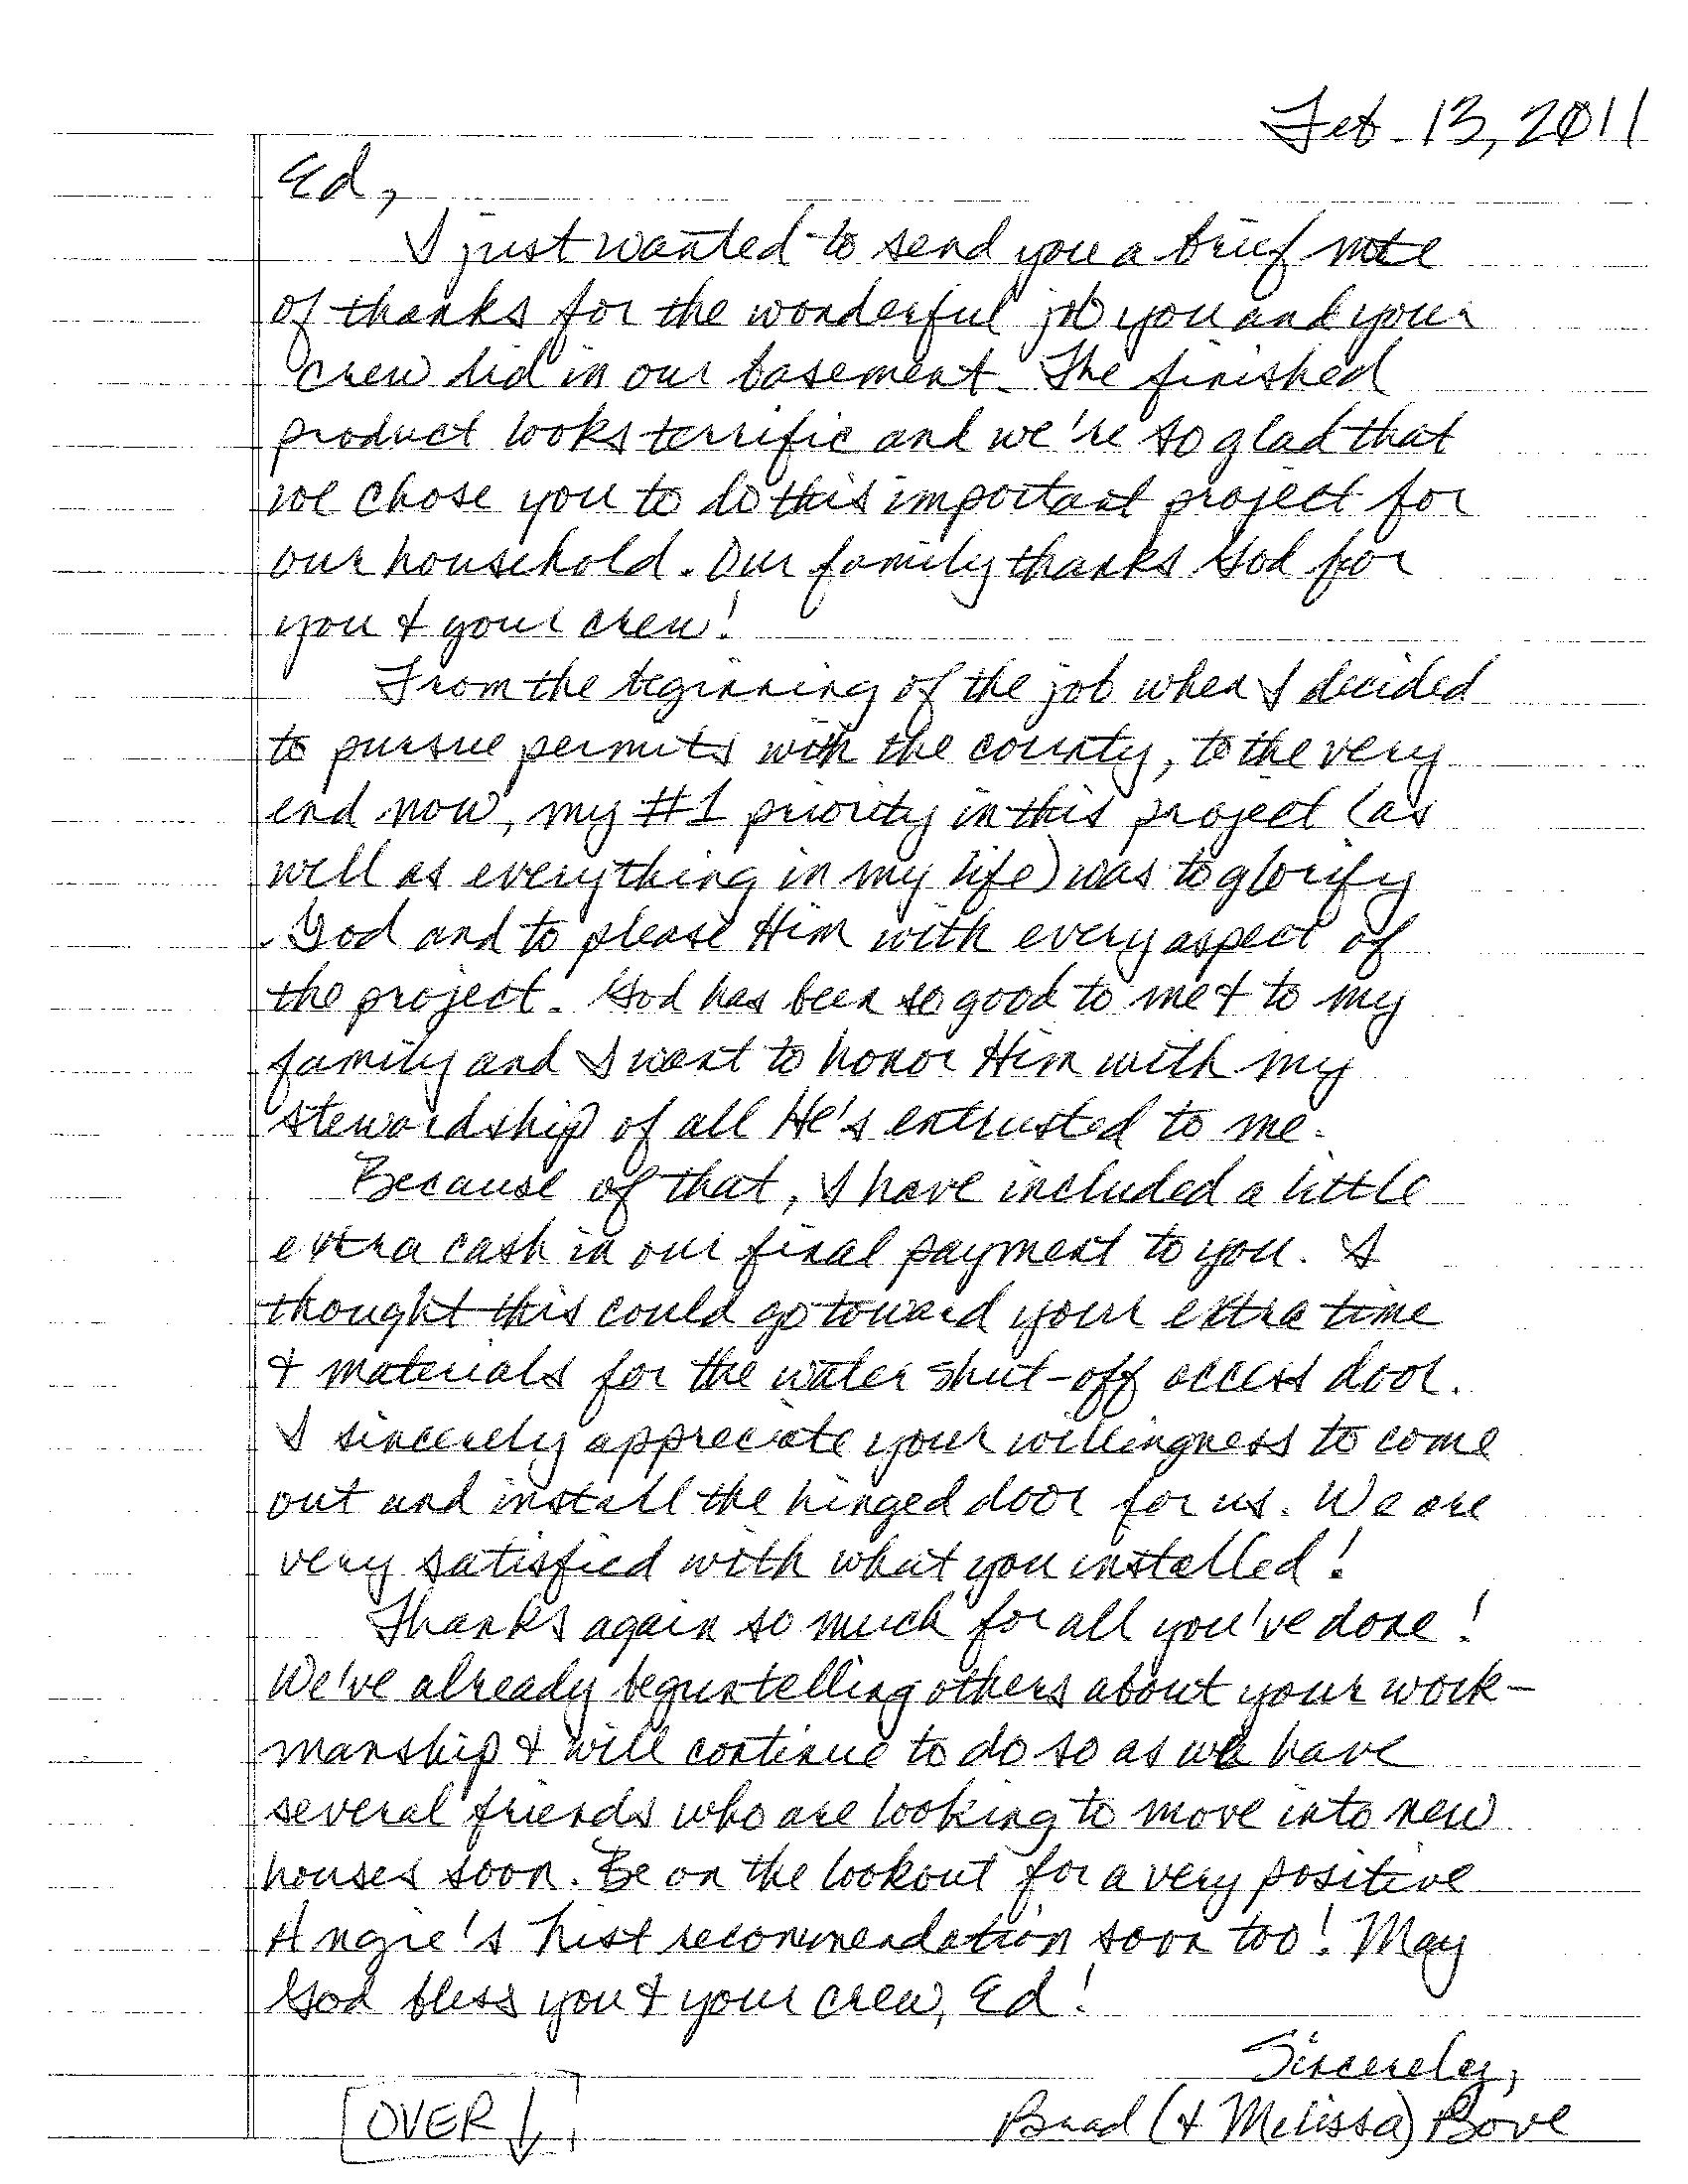 Feb. 13, 2011
Ed,
I just wanted to send you a brief note
of thanks for the wonderful job you and your
crew did in our basement. The finished
product looks terrific and we're so glad that
we chose you to do this important project for
our household. Our family thanks God for
you & your crew!
From the beginning of the job when I decided
to pursue permits with the county, to the very
end now, my #1 priority in this project (as
well as everything in my life) was to glorify
God and to please Him with every aspect of
the project. God has been so good to me & to my
family and I want to honor Him with my
stewardship of all He's entrusted to me.
Because of that, I have included a little
extra cash in our final payment to you. I
thought this could go toward your extra time
& materials for the water shut-off access door.
I sincerely appreciate your willingness to come
out and install the hinged door for us. We are
very satisfied with what you installed!
Thanks again so much for all you've done!
We've already begun telling others about your work-
manship & will continue to do so as we have
several friends who are looking to move into new
houses soon. Be on the lookout for a very positive
Angie's List recommendation soon too! May
God bless you & your crew, Ed!
Sincerely,
Brad (& Melissa) Bove
[OVER ↓]